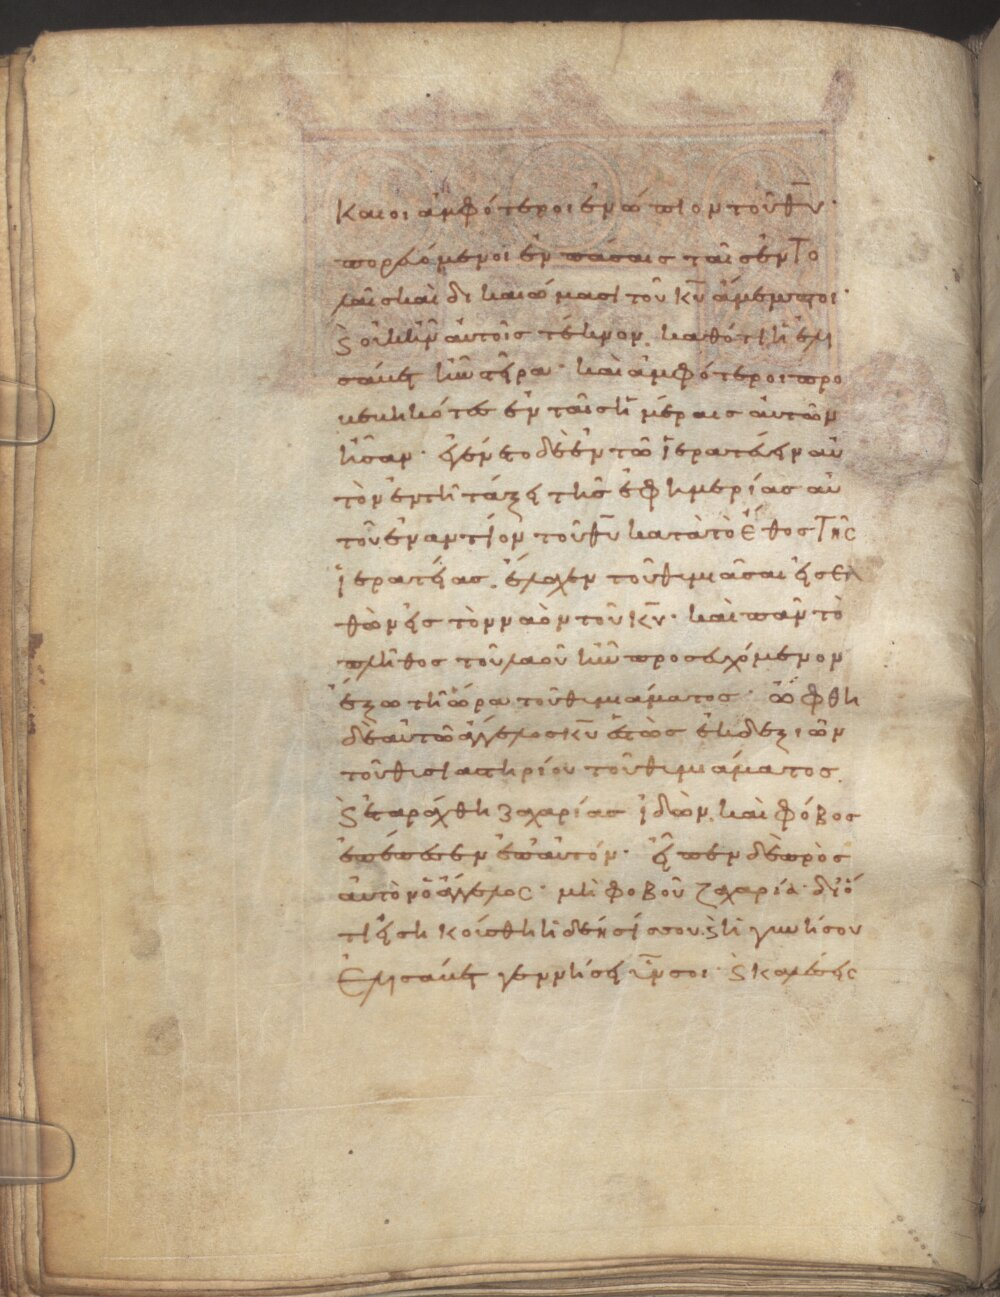 καιοι ἀμφότεροι ἐνώπιον τοῦ θῡ·
πορευόμενοι ἐν πάσαις ταῖς ἐντο
λαῖς καὶ δικαιώμασι τοῦ κῡ ἄμεμπτοι·
ϗ οὐκ ἦν αὐτοῖς τέκνον. καθότι ἡ ἐλι
σάβετ ἦν στεῖρα· καὶ ἀμφότεροι προ
βεβηκότες ἐν ταῖς ἡμέραις αὐτῶν
ἦσαν· ἐγένετο δὲ ἐν τῶ ἱερατεύειν αὐ
τὸν ἐν τῆ τάξει τῆς ἐφημερίας αὐ
τοῦ ἐναντίον τοῦ θῡ κατὰ τὸ ἔθος τῆς
ἱερατείας. ἔλαχεν τοῦ θυμιᾶσαι εἰσελ
θὼν εἰς τὸν ναὸν τοῦ κῡ· καὶ πᾶν τὸ
πλῆθος τοῦ λαοῦ ἦν προσευχόμενον
ἔξω τῆ ὥρα τοῦ θυμιάματος· ὤφθη
δὲ αὐτῶ ἄγγελος κῡ ἑστὼς ἐκ δεξιῶν
τοῦ θυσιαστηρίου τοῦ θυμιάματος.
ϗ ἐταράχθη ζαχαρίας ἰδὼν. καὶ φόβος
ἐπέπεσεν ἐπ αὐτόν· εἶπεν δὲ πρὸς
αὐτὸν ὁ ἄγγελος· μὴ φοβοῦ ζαχαρία· διό
τι εἰσηκούσθη ἡ δέησίς σου. ϗ ἡ γυνή σου
ἐλισάβετ γεννήσει υἱν σοι· ϗ καλέσεις